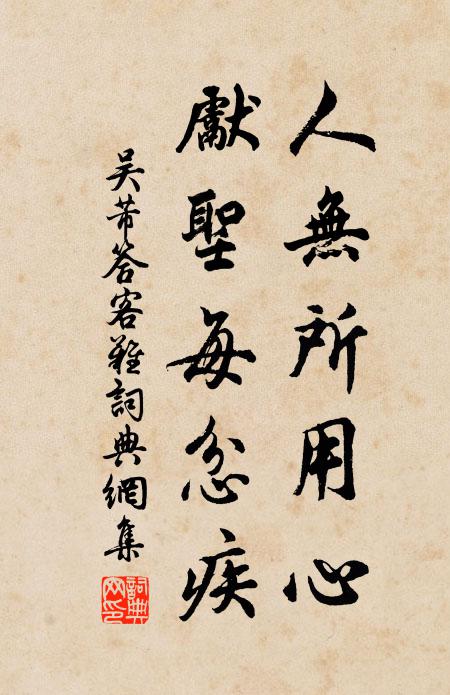 人無所用心
獻聖每忿疾
吳芾答客難詞典網集
詞典網印